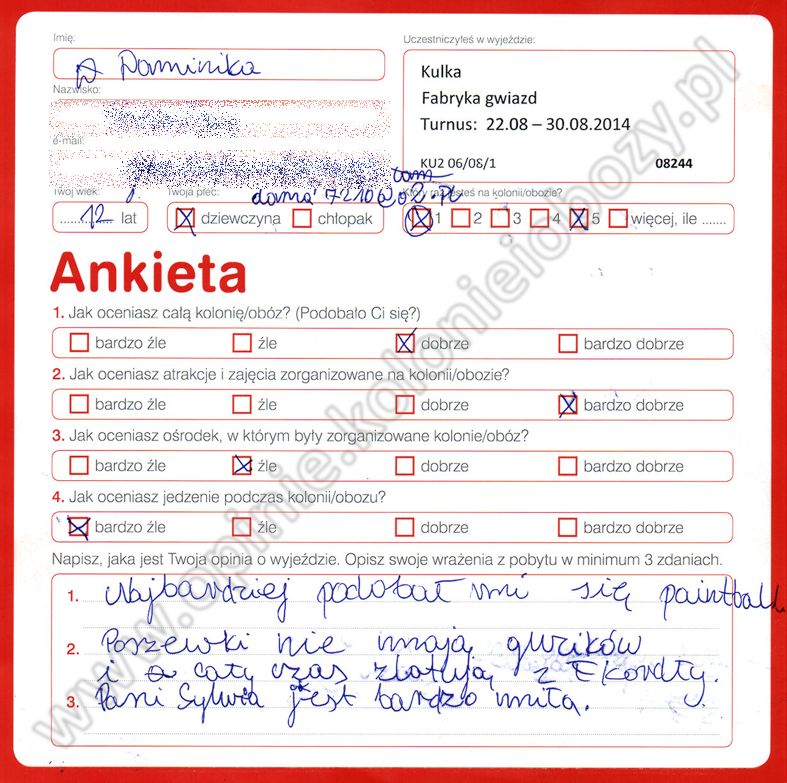 Imię:
Dominika
Uczestniczyłeś w wyjeździe:
Kulka
Fabryka gwiazd
Turnus: 22.08 – 30.08.2014
KUZ 06/08/1 08244
Nazwisko:
e-mail:
Twój wiek:
12 lat
Twoja płeć:
dziewczyna chłopak
Który raz jesteś na kolonii/obozie?
1 2 3 4 5 więcej, ile .......
Ankieta
1. Jak oceniasz całą kolonię/obóz? (Podobało Ci się?)
bardzo źle źle dobrze bardzo dobrze
2. Jak oceniasz atrakcje i zajęcia zorganizowane na kolonii/obozie?
bardzo źle źle dobrze bardzo dobrze
3. Jak oceniasz ośrodek, w którym były zorganizowane kolonie/obóz?
bardzo źle źle dobrze bardzo dobrze
4. Jak oceniasz jedzenie podczas kolonii/obozu?
bardzo źle źle dobrze bardzo dobrze
Napisz, jaka jest Twoja opinia o wyjeździe. Opisz swoje wrażenia z pobytu w minimum 3 zdaniach.
1. Najbardziej podobał mi się paintball.
2. Poszewki nie mają guzików
i cały czas zlatują z
3. Pani Sylwia jest bardzo miła.
www.opinie.kolonieiobozy.pl